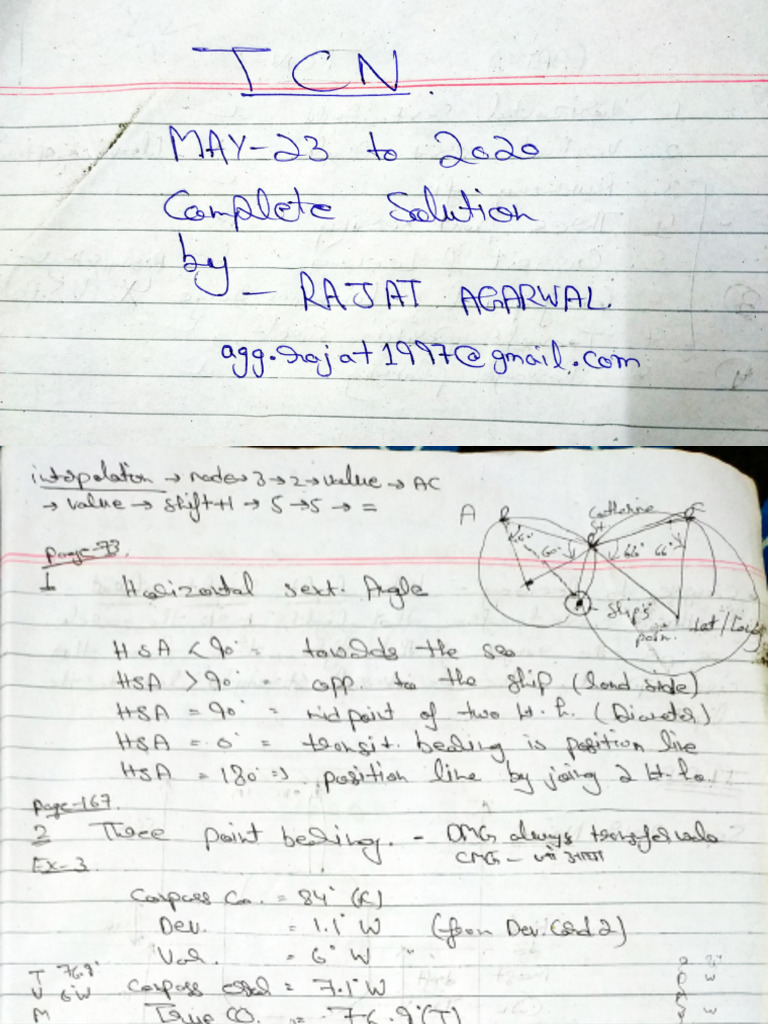 TCN.
MAY-23 to 2020
Complete Solution
by - RAJAT AGARWAL.
agg.rajat1997@gmail.com
intepolation → mode → 3 → 2 → value → AC
→ value → shift+1 → 5 → 5 → =
page-73.
A
Catherine
St.
60°
66° 66°
ship's
posn.
Lat/Long
1 Horizontal sext. Angle
HSA < 90° = towards the sea
HSA > 90° = opp. to the ship (land side)
HSA = 90° = midpoint of two Lt. h. (Diameter)
HSA = 0° = transit. bearing is position line
HSA = 180° => position line by joing 2 Lt. ho.
page-167.
2 Three point bearing. - DMG always transfer
CMG -
Ex-3
Compass Co. = 84° (C)
Dev. = 1.1° W (from Dev. Card 2)
Var. = 6° W
T 76.9°
V 6°W
M
Compass error = 7.1° W
True CO. = 76.9° (T)